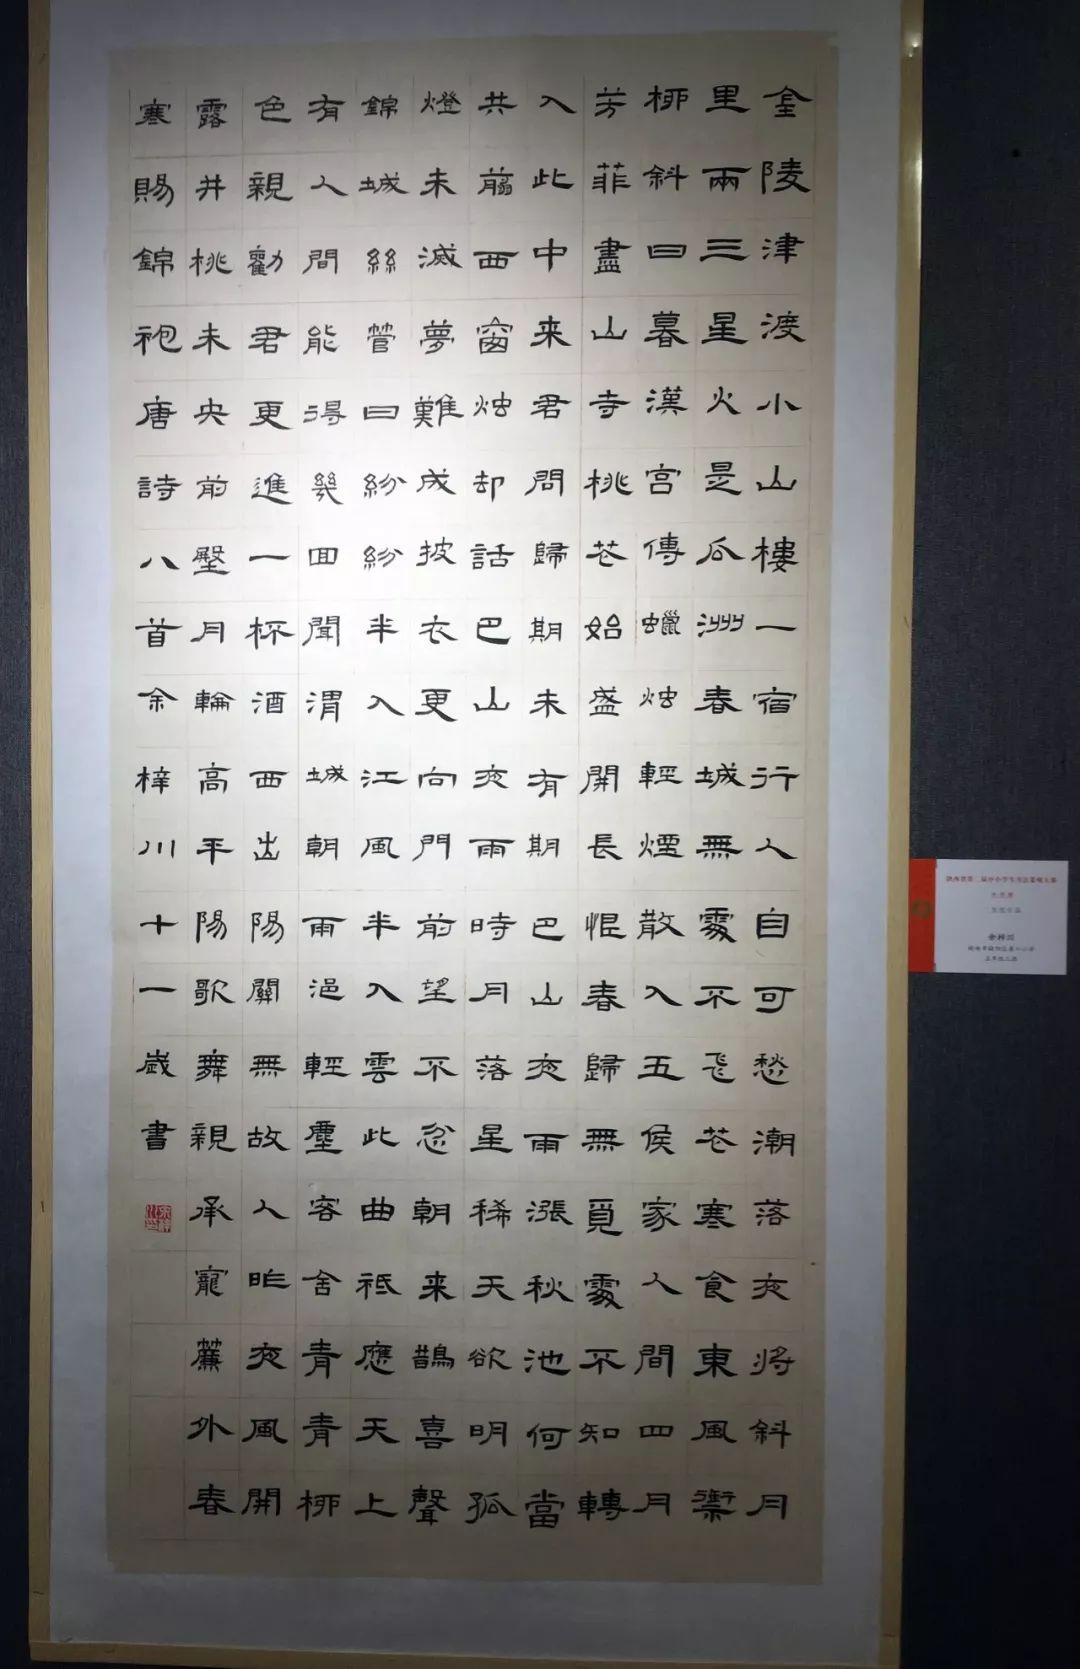 金陵津渡小山樓一宿行人自可愁潮落夜将斜月
里兩三星火是瓜洲春城無處不飞花寒食東風禦
柳斜日暮漢宮傳蠟烛輕煙散入五侯家人間四月
芳菲盡山寺桃花始盛開長恨春歸無覓處不知轉
入此中来君問歸期未有期巴山夜雨漲秋池何當
共翦西窗烛却話巴山夜雨時月落星稀天欲明孤
燈未滅夢難成披衣更向門前望不忿朝来鵲喜聲
錦城絲管日紛紛半入江風半入雲此曲祗應天上
有人間能得幾回聞渭城朝雨浥輕塵客舍青青柳
色親勸君更進一杯酒西出陽關無故人昨夜風開
露井桃未央前殿月輪高平陽歌舞親承寵簾外春
寒賜錦袍唐詩八首余梓川十一歲書
余梓川